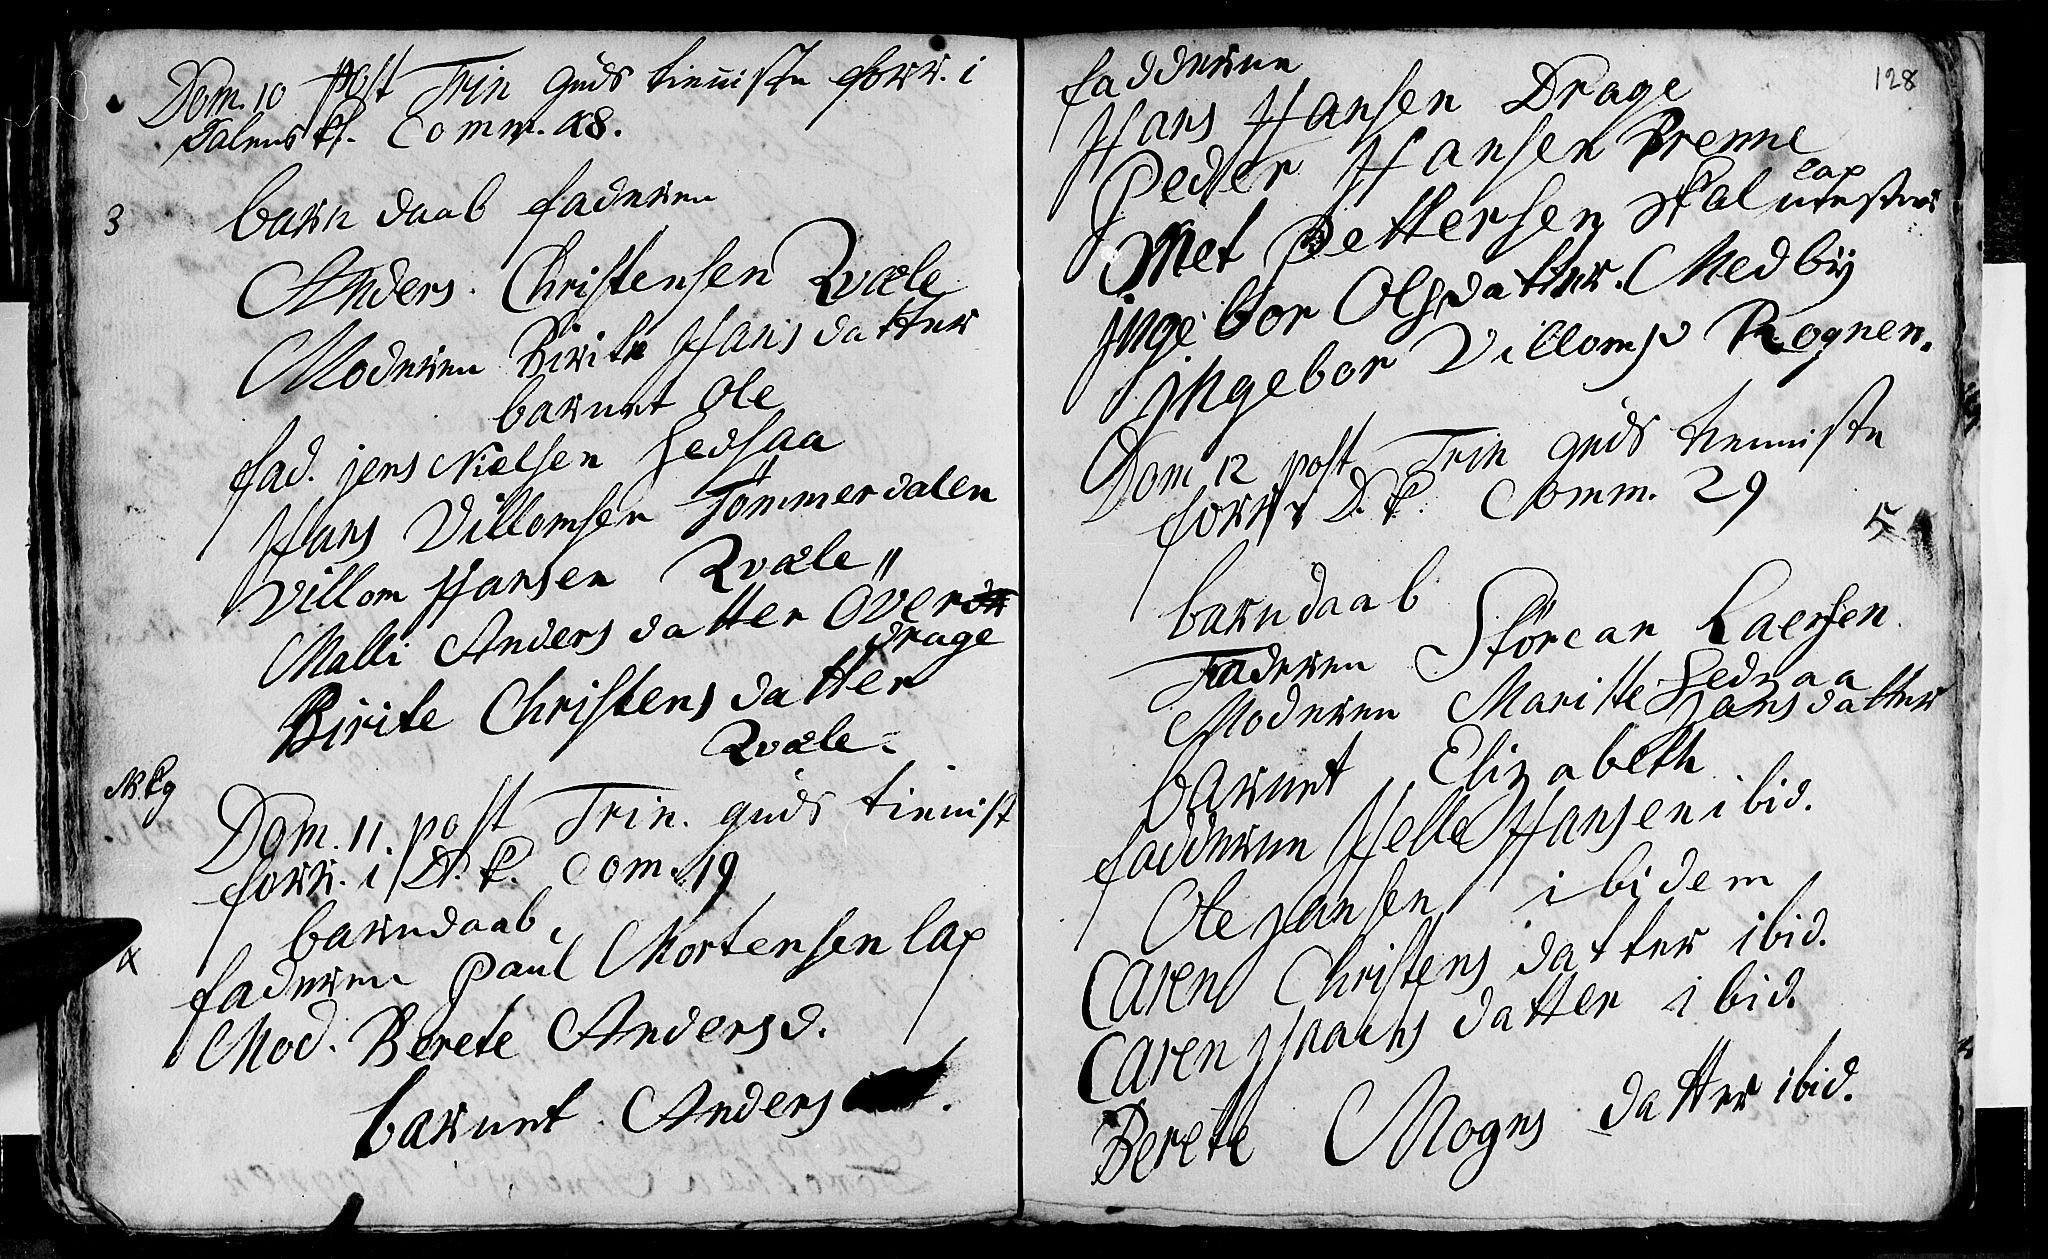 Dom. 10 post Trin guds tienniste forr. i
Dalens k. Comm. 48.
3
barn daab faderen
Anders. Christensen Qvæle
Moderen Birite Hans datter
barnet Ole
fad. jens Nielsen Hedsaa
Hans Villomsen Tömmerdalen
Villom Hansen Qvæle
Malli Anders datter Över
drage
Birite Christens datter
Qvæle.
Dom. 11. post Trin. guds tienist
forr. i D. k. Com. 19
4
barndaab,
faderen Paul Mortensen lap
Mod. Berete Anders d.
barnet Anders
128
fadderene
Hans Hansen Drage
Peder Hansen Brenne
lap
Met Pettersen
ingebor Olsdatter. Medby
ingebor Villoms d Rognen.
Dom 12 post Trin guds tienniste
forr i D. k. Comm. 29
5
barndaab
Faderen Störcar Laersen
Hednaa
Moderen Maritte Hansdatter
barnet Elizabeth
fadderene Helle Hansen ibid.
Ole Hansen ibidem
Caren Christens datter ibid.
Caren Haans datter ibid.
Berete Mogns datter ibid.